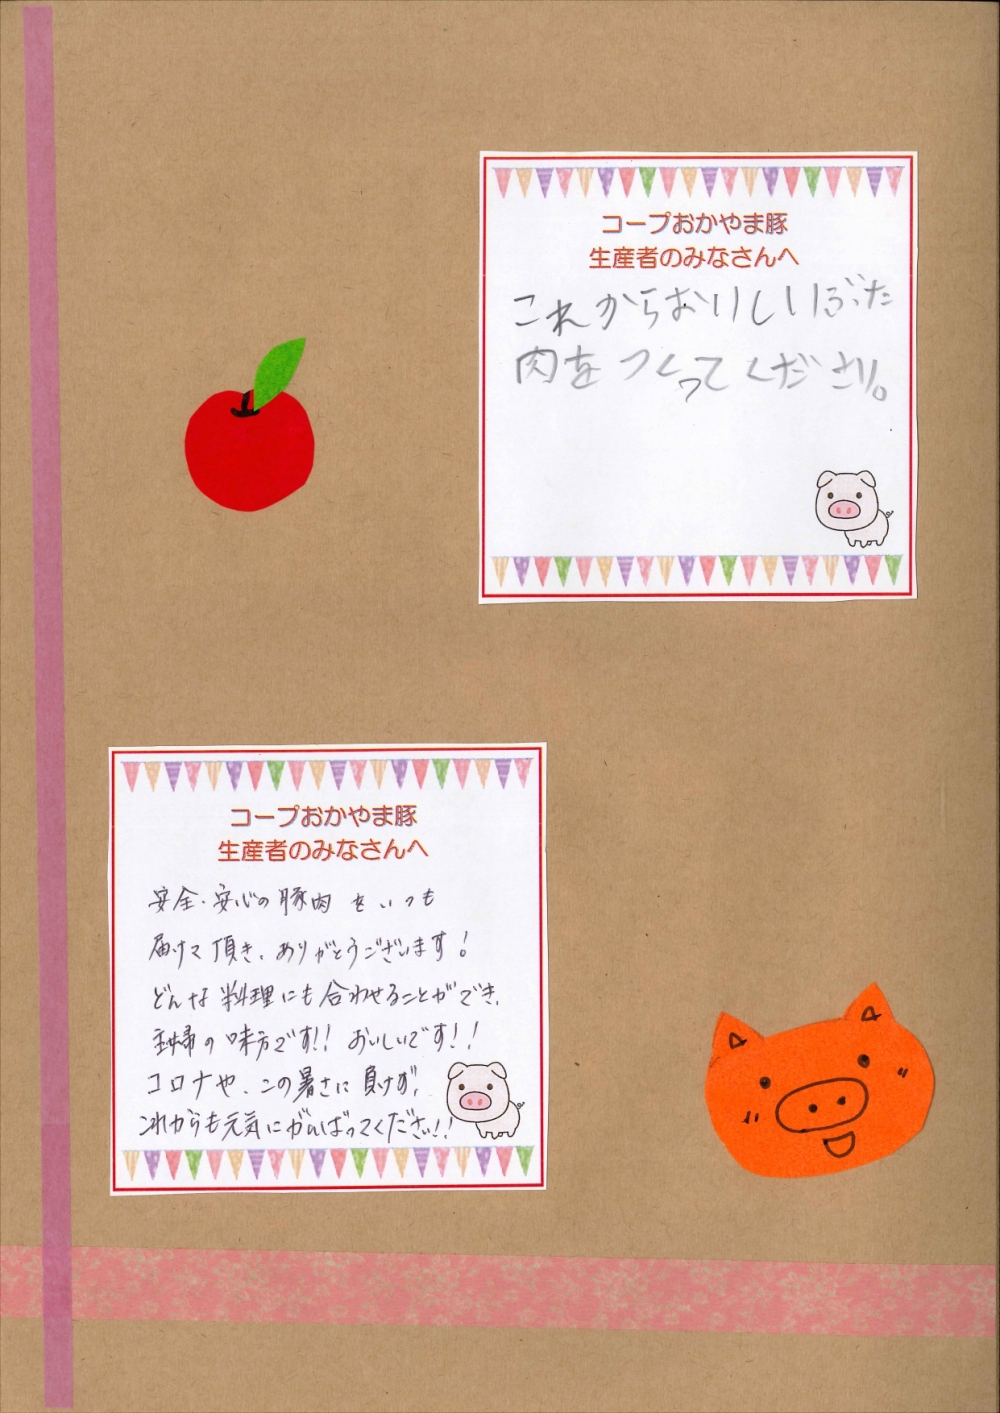 コープおかやま豚
生産者のみなさんへ
これからおいしいぶた
肉をつくってください。
コープおかやま豚
生産者のみなさんへ
安全・安心の豚肉をいつも
届けて頂き、ありがとうございます!
どんな料理にも合わせることができ、
主婦の味方です!! おいしいです!!
コロナや、この暑さに負けず、
これからも元気にがんばってください!!